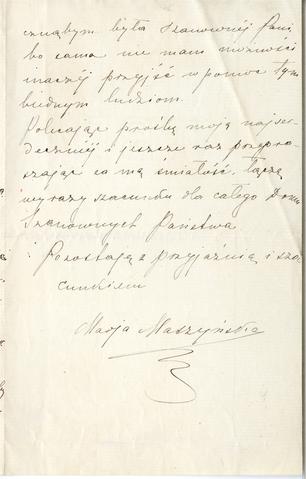 cznąbym była Szanownej Pani,
bo sama nie mam możności
inaczej przyjść w pomoc tym
biednym ludziom.
Polecając prośbę moją najser-
deczniej i jeszcze raz przepra-
szając za mą śmiałość, łączę
wyrazy szacunku dla całego Domu
Szanownych Państwa
Pozostaję z przyjaźnią i sza-
cunkiem
Marja Maszyńska